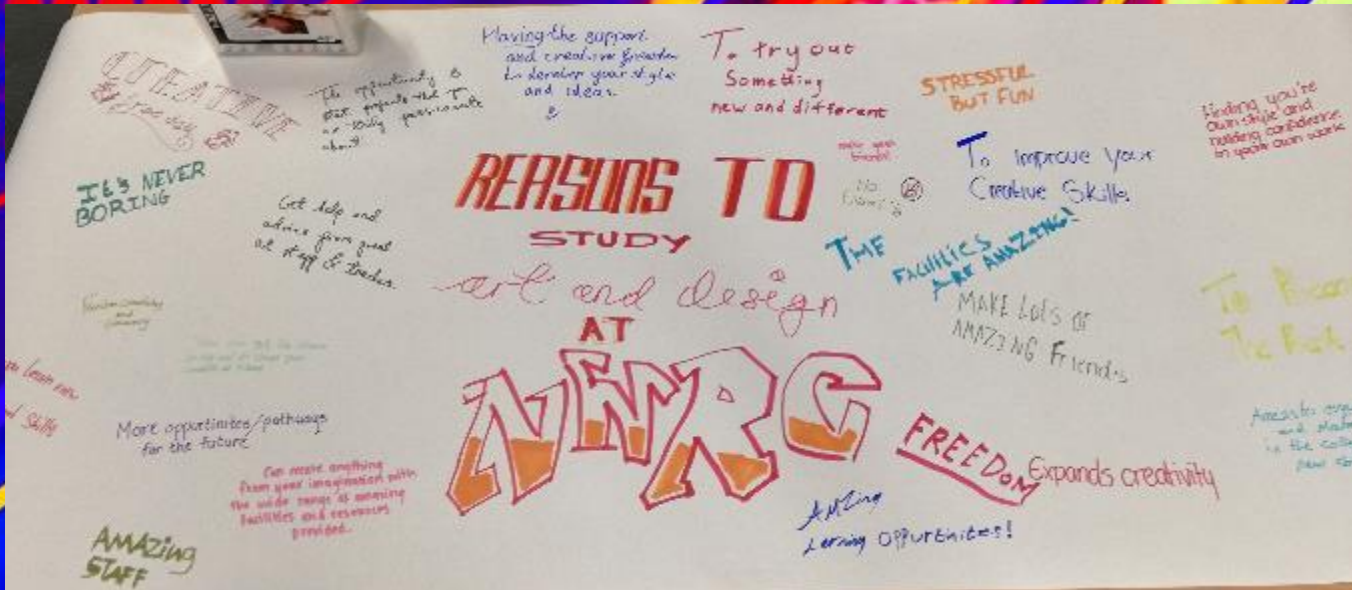 CREATIVE
freedom
The opportunity to
start projects that I
am really passionate
about.
Having the support
and creative freedom
to develop your style
and ideas
To try out
Something
new and different
STRESSFUL
BUT FUN
Finding you're
own style and
building confidence
in your own work
IT'S NEVER
BORING
Get help and
advice from great
art staff & teachers
make new
friends!
No
Exams
To improve your
Creative Skills
REASONS TO
STUDY
art and design
AT
NWRC
THE
FACILITIES
ARE AMAZING!
MAKE LOTS OF
AMAZING Friends
To
The
and
community
learn new
Skills
More oppurtinites/pathways
for the future
Can create anything
from your imagination with
the wide range of amazing
facilities and resources
provided.
AMAZING
STAFF
FREEDOM
Expands creativity
AMZing
Lerning OPPurtnites!
Access to
and
in the